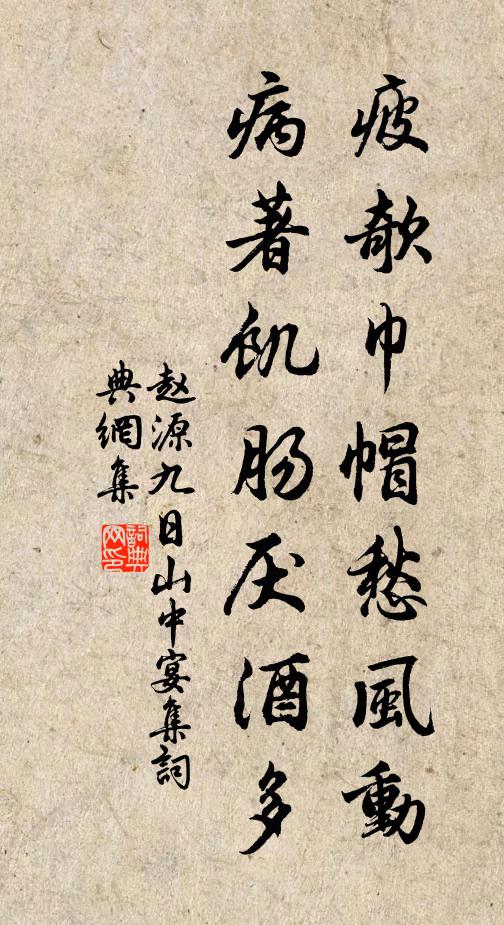 疲欹巾帽愁風動
病著飢肠厌酒多
赵源九日山中宴集詞
典網集
詞典
网印